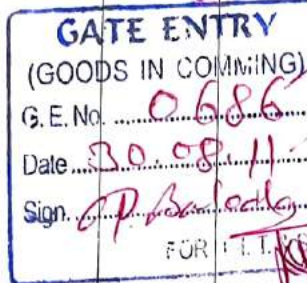 GATE ENTRY
(GOODS IN COMMING)
G.E. No. 0686
Date 30.08.11
Sign.
FOR I.I.T.